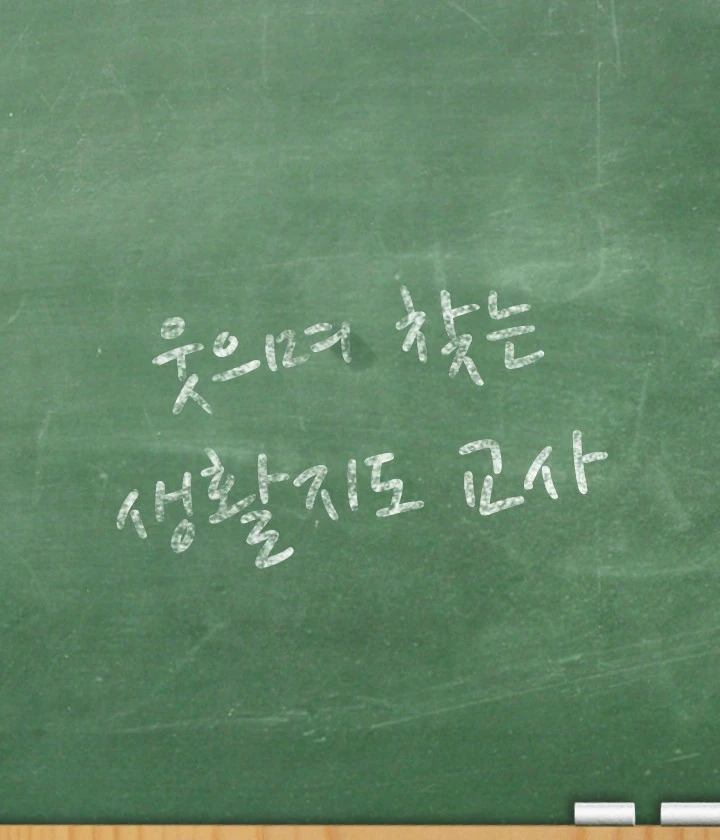 웃으며 찾는
생활지도 교사